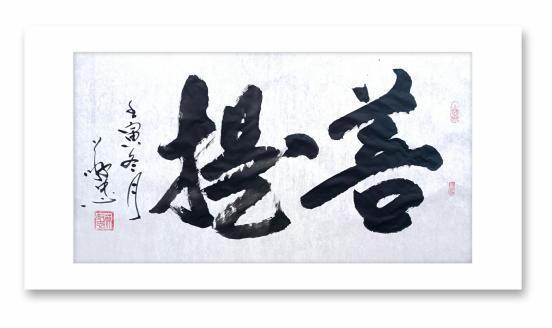 菩提
壬寅冬月